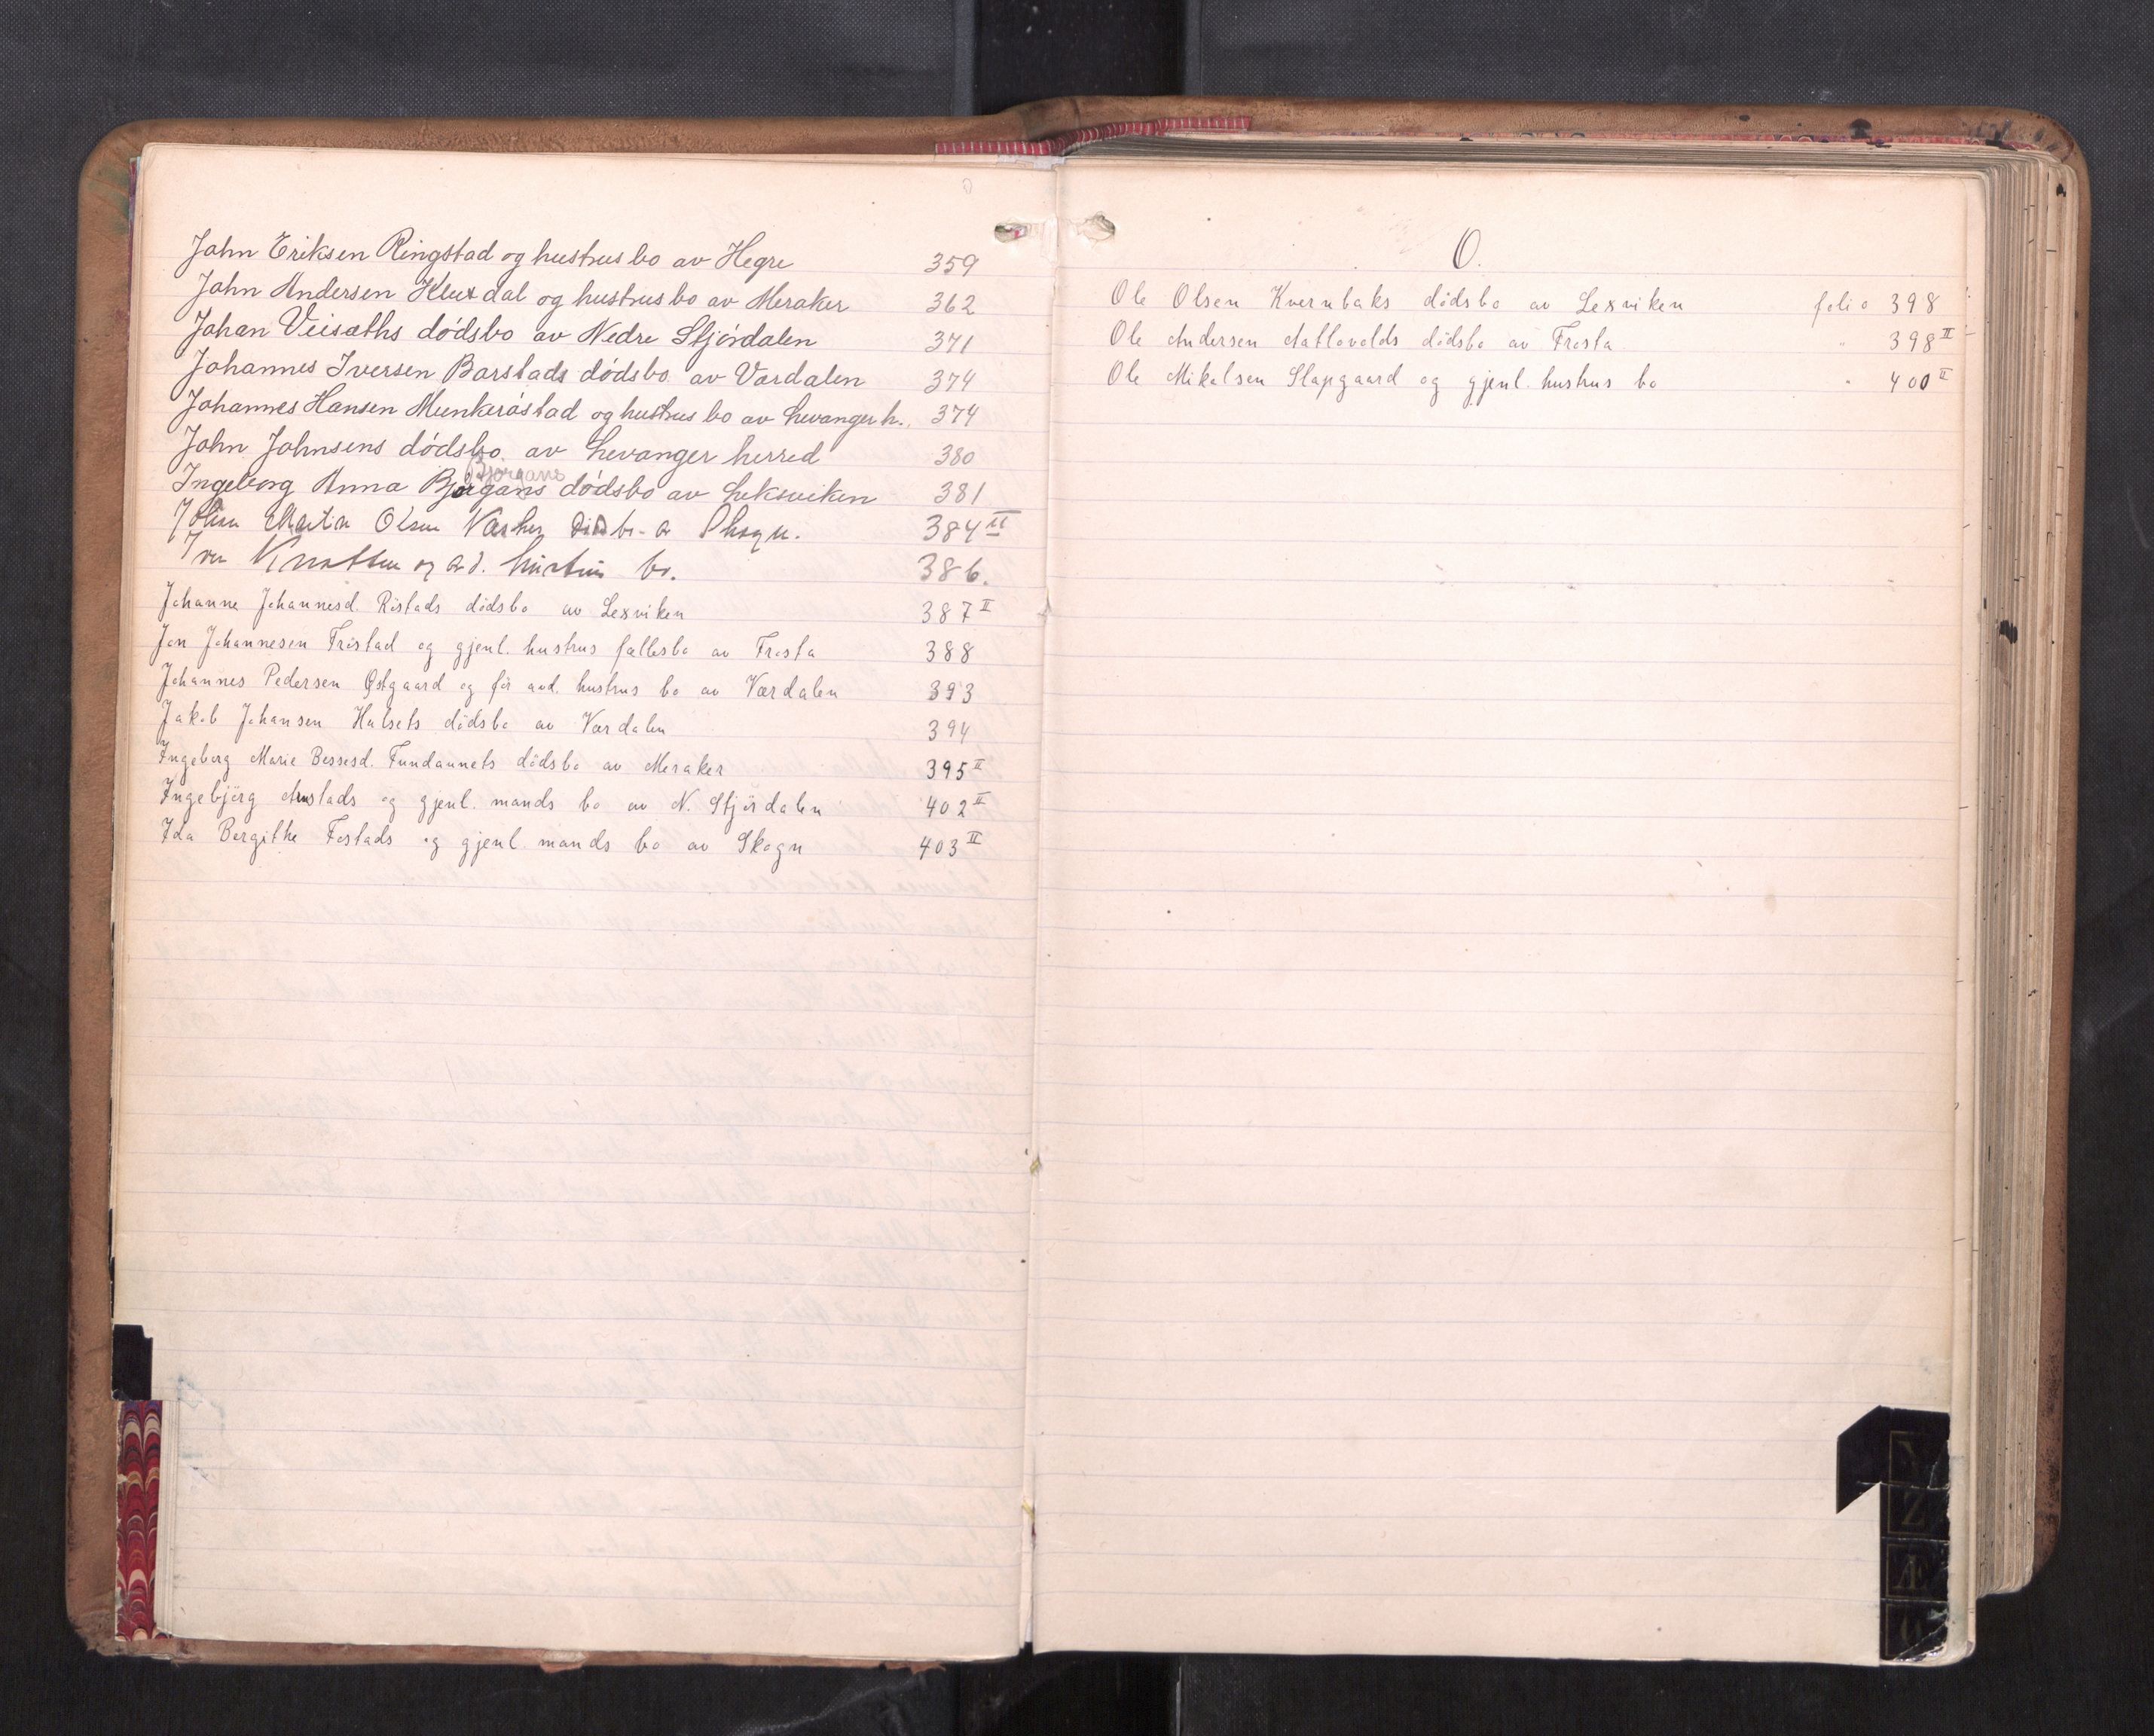 John Eriksen Ringstad og hustrus bo av Hegre 359
John Andersen Kluxdal og hustrus bo av Meraker 362
Johan Veisæths dödsbo av Nedre Stjördalen 371
Johannes Iversen Barstads dödsbo av Værdalen 374
Johannes Hansen Munkeråstad og hustrus bo av Levanger h. 374
John Johnsens dödsbo av Levanger herred 380
Bjørgans
Ingeborg Anna Bjørgans dödsbo av Leksviken 381
Johan Martin Olsen bo 384 II
Iver og hustrus bo. 386.
Johanne Johannesd. Röstads dödsbo av Lexviken 387 II
Jon Johannesen Fröstad og gjenl. hustrus fællesbo av Frosta 388
Johannes Pedersen Östgaard og för avd. hustrus bo av Værdalen 393
Jakob Johansen Halsets dödsbo av Værdalen 394
Ingeborg Marie Bessesd. Fundaunets dödsbo av Meraker 395 II
Ingebjörg Arnstads og gjenl. mands bo av N. Stjördalen 402 II
Ida Bergithe Fostads og gjenl. mands bo av Skogn 403 II
O.
Ole Olsen Kvernbaks dödsbo av Lexviken folio 398
Ole Andersen dödsbo av Frosta " 398 II
Ole Mikalsen Slapgaard og gjenl. hustrus bo " 400 II
Y
Z
Æ